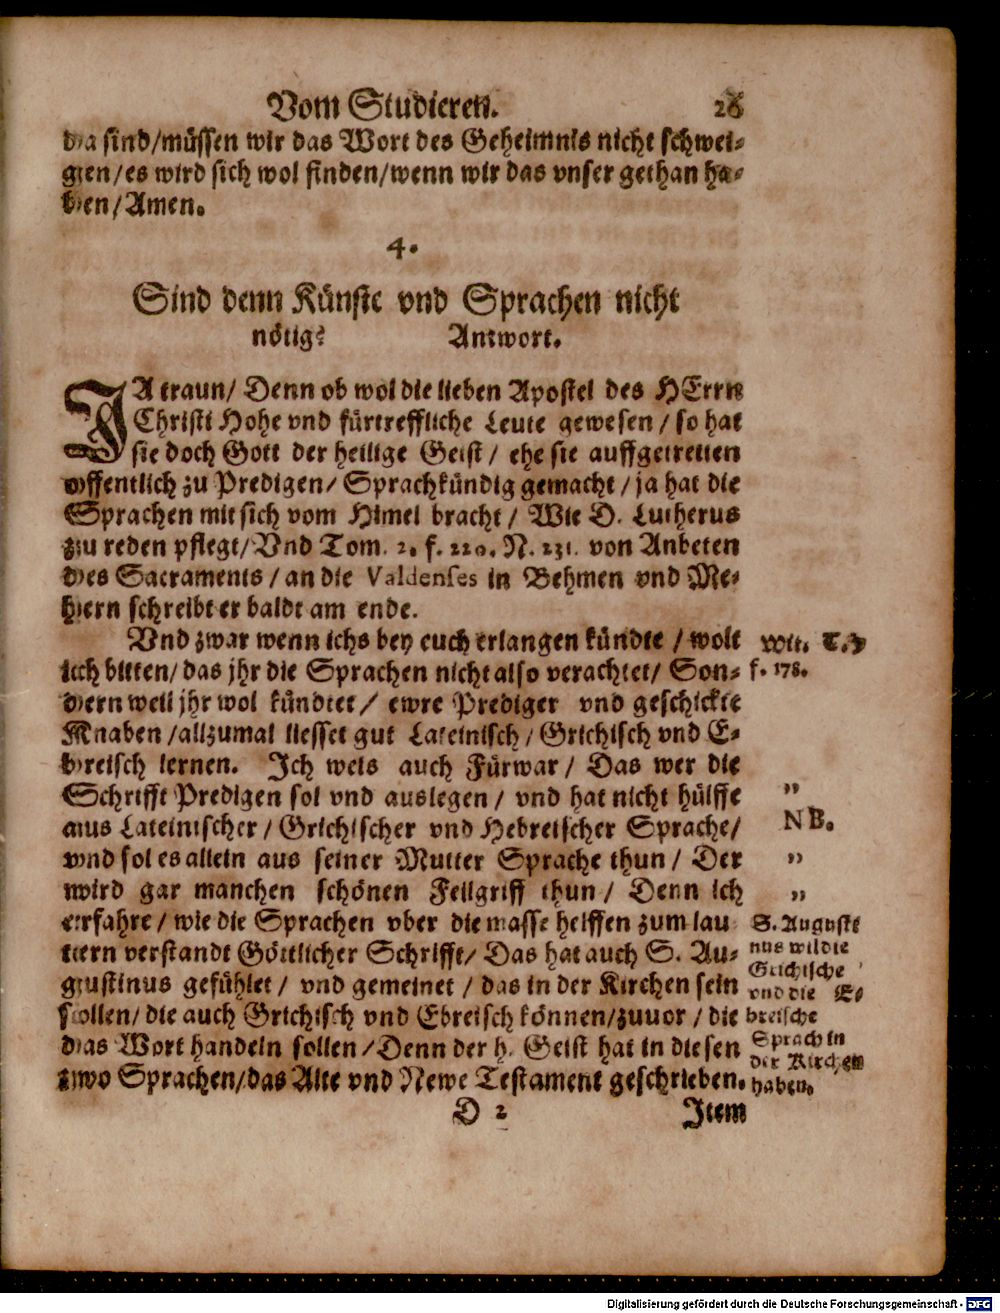 Vom Studieren. 26
da sind/müssen wir das Wort des Geheimnis nicht schwei-
gen/es wird sich wol finden/wenn wir das vnser gethan ha-
ben/Amen.
4.
Sind denn Künste vnd Sprachen nicht
nötig? Antwort.
JA traun/ Denn ob wol die lieben Apostel des HErrn
Christi Hohe vnd fürtreffliche Leute gewesen / so hat
sie doch Gott der heilige Geist / ehe sie auffgetretten
offentlich zu Predigen/ Sprachkündig gemacht / ja hat die
Sprachen mit sich vom Himel bracht / Wie D. Lutherus
zu reden pflegt/Vnd Tom. 2. f. 220. N. 231. von Anbeten
des Sacraments / an die Valdenses in Behmen vnd Me-
hern schreibt er baldt am ende.
Vnd zwar wenn ichs bey euch erlangen kündte / wolt
ich bitten/ das jhr die Sprachen nicht also verachtet/ Son-
dern weil jhr wol kündtet / ewre Prediger vnd geschickte
Knaben /allzumal liesset gut Lateinisch/ Grichisch vnd E-
breisch lernen. Ich weis auch Fürwar / Das wer die
Schrifft Predigen sol vnd auslegen / vnd hat nicht hülffe
aus Lateinischer / Grichischer vnd Hebreischer Sprache/
vnd sol es allein aus seiner Mutter Sprache thun / Der
wird gar manchen schönen Feilgriff thun / Denn ich
erfahre / wie die Sprachen vber die masse helffen zum lau
tern verstandt Göttlicher Schrifft/ Das hat auch S. Au-
gustinus gefühlet / vnd gemeinet / das in der Kirchen sein
sollen/ die auch Grichisch vnd Ebreisch können/zuuor / die
das Wort handeln sollen /Denn der h. Geist hat in diesen
zwo Sprachen/das Alte vnd Newe Testament geschrieben.
D 2 Item
Wit. T.
f. 178.
”
NB.
”
”
S. Augusti
nus wil die
Grichische
vnd die E-
breische
Sprach in
der Kirchen
haben.
Digitalisierung gefördert durch die Deutsche Forschungsgemeinschaft - DFG